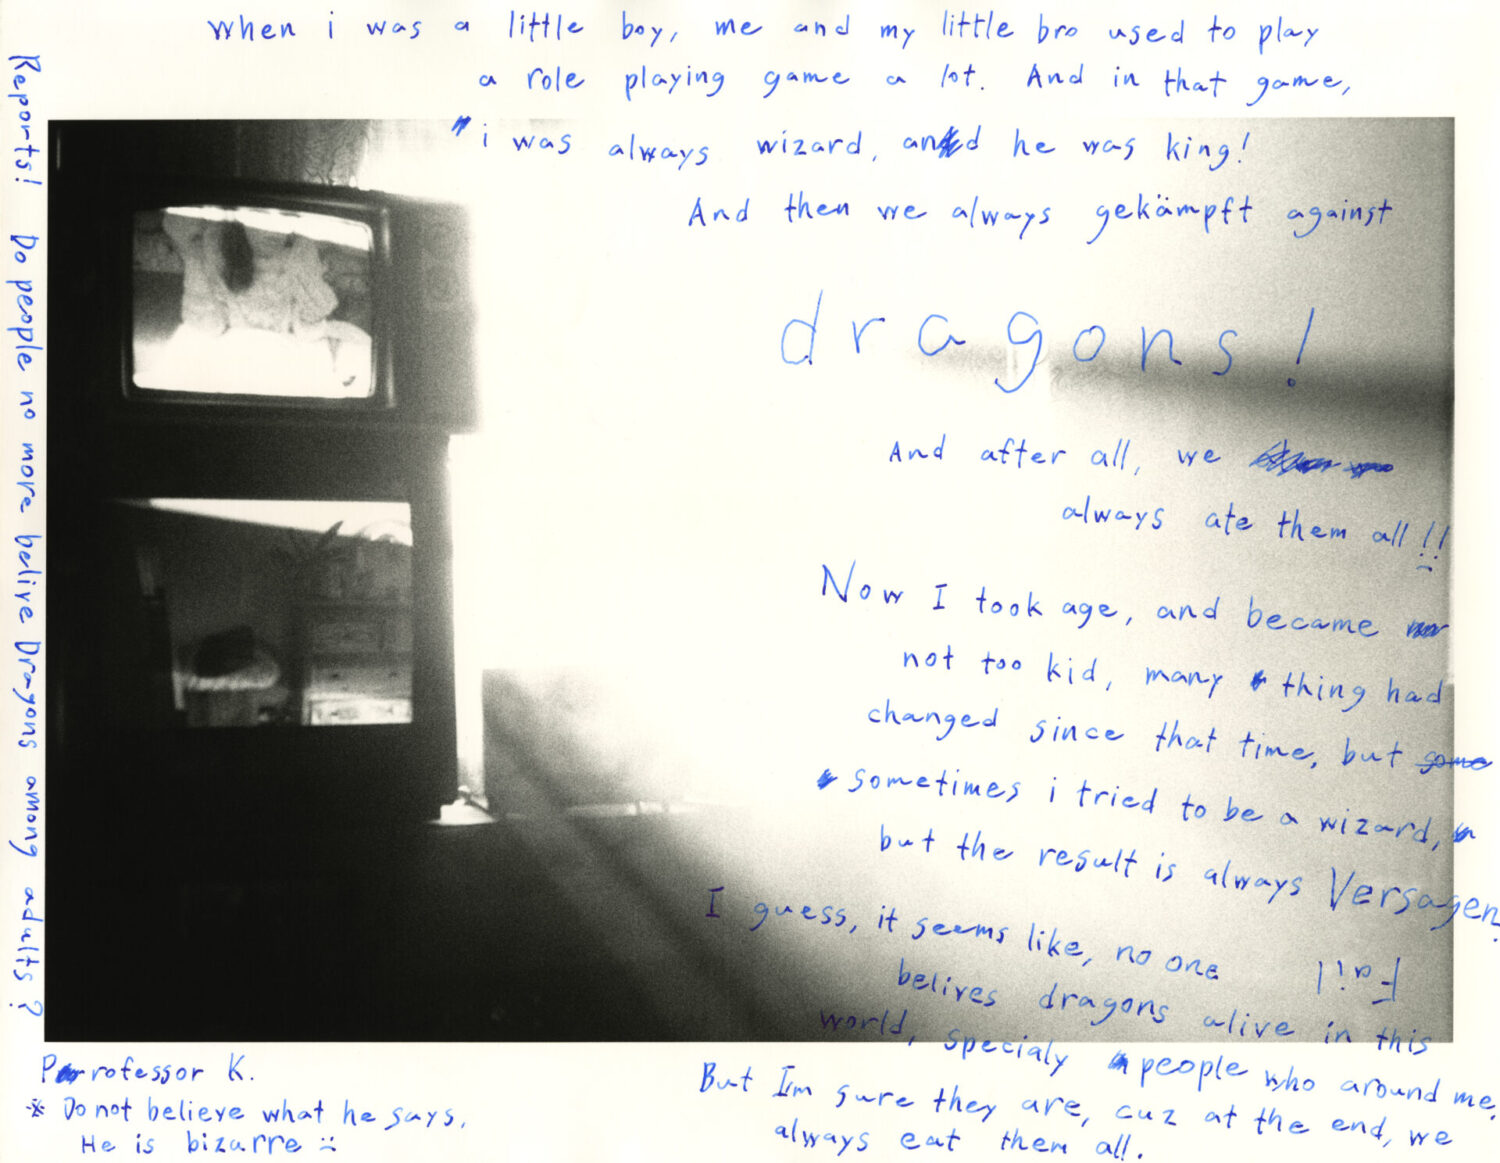 when i was a little boy, me and my little bro used to play
a role playing game a lot. And in that game,
i was always wizard, and he was king!
And then we always gekämpft against
dragons!
And after all, we
always ate them all!!
Now I took age, and became
not too kid, many thing had
changed since that time, but some
sometimes i tried to be a wizard,
but the result is always Versagen.
Fail
I guess, it seems like, no one
belives dragons alive in this
world, specialy people who around me.
But I'm sure they are, cuz at the end, we
always eat them all.
Reports! Do people no more belive Dragons among adults?
Professor K.
* Do not believe what he says,
He is bizarre :(